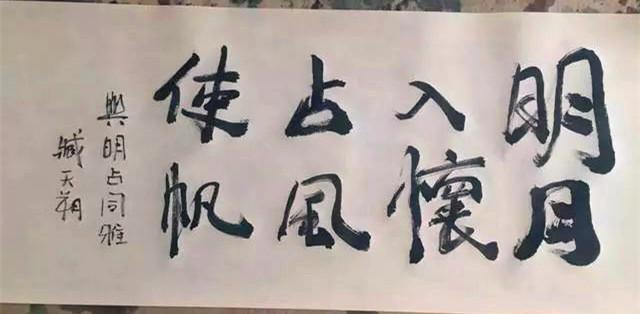 明月
入懷
占風
使帆
與明占同雅
臧天朔